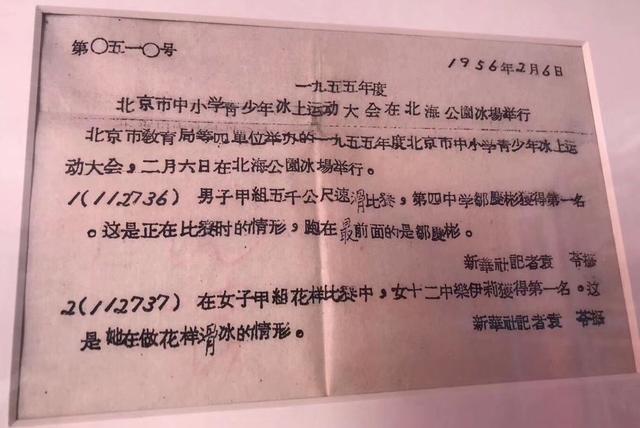 第〇五一〇号
1956年2月6日
一九五五年度
北京市中小学青少年冰上运动大会在北海公園冰場举行
北京市教育局等四单位举办的一九五五年度北京市中小学青少年冰上运
动大会，二月六日在北海公園冰場举行。
1(112736) 男子甲組五千公尺速滑比赛，第四中学鄒慶彬獲得第一名
。这是正在比赛时的情形，跑在最前面的是鄒慶彬。
新華社記者袁 苓摄
2(112737) 在女子甲組花样比赛中，女十二中樂伊莉獲得第一名。这
是她在做花样滑冰的情形。
新華社記者袁 苓摄